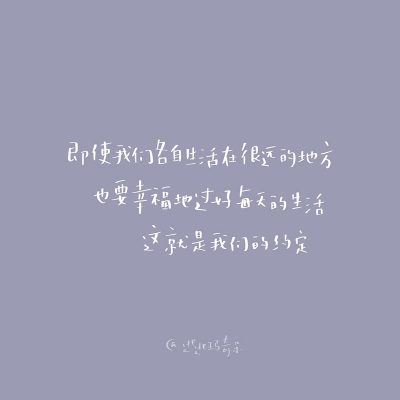 即使我们各自生活在很远的地方
也要幸福地过好每天的生活
这就是我们的约定